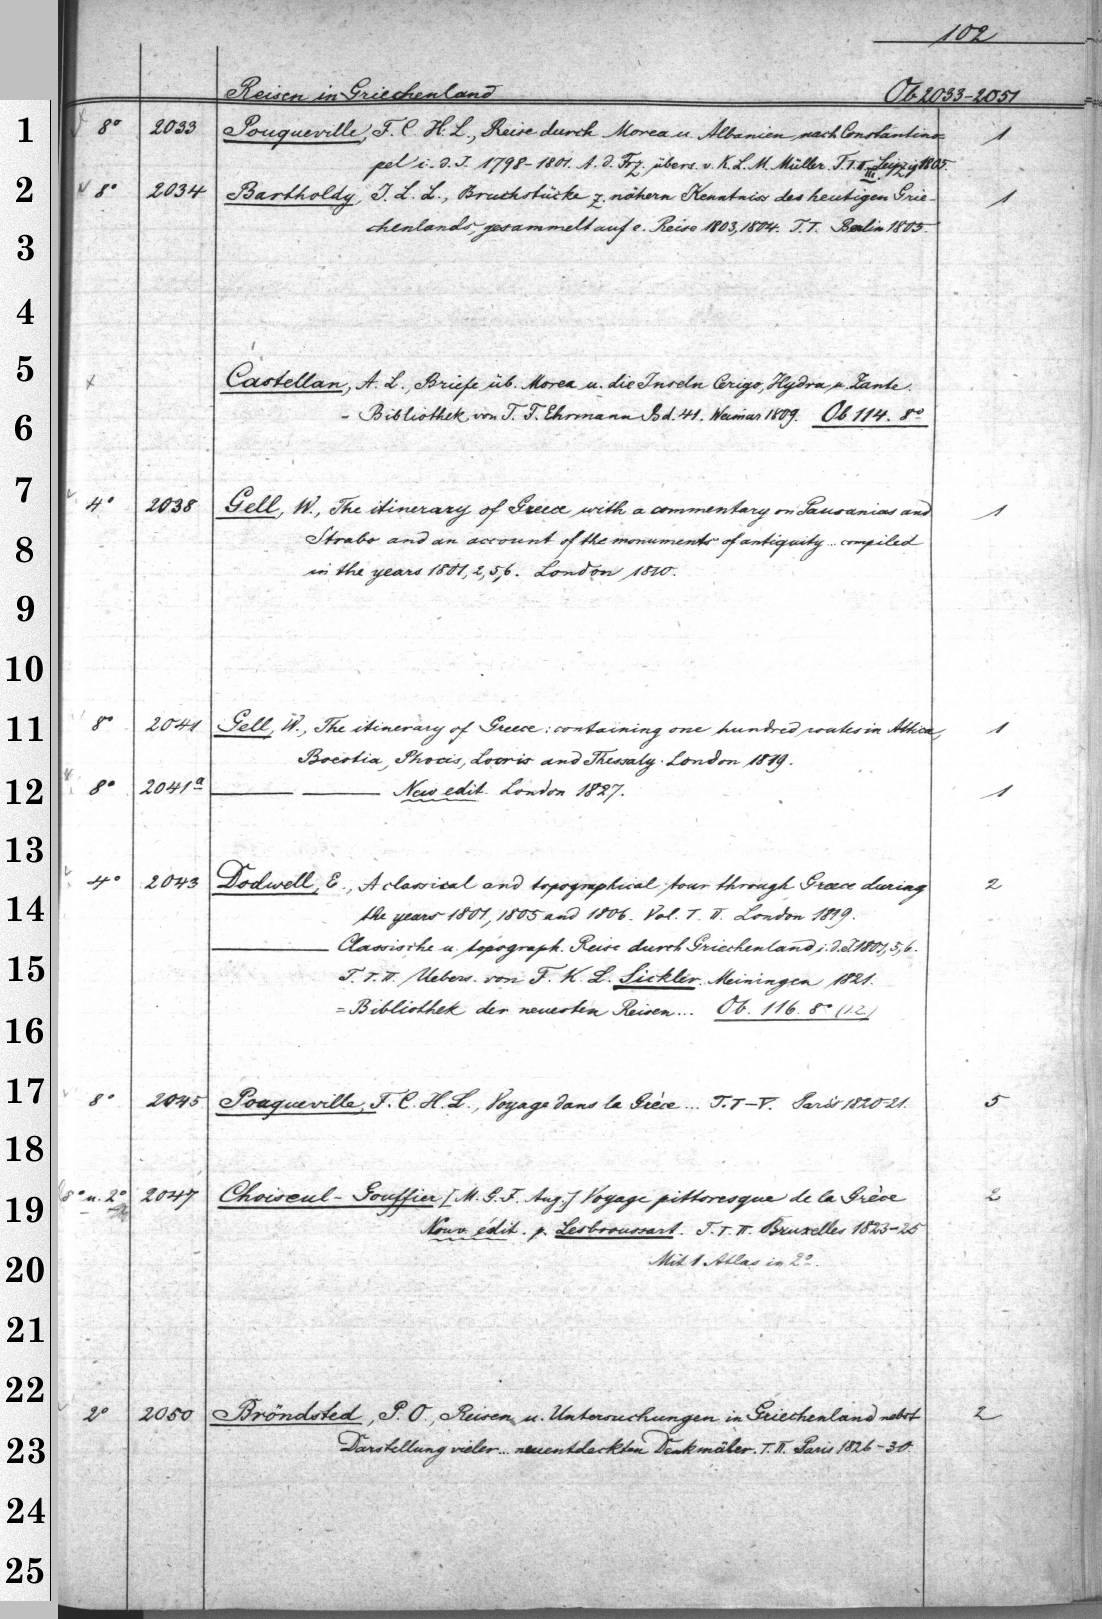 102
Reisen in Griechenland Ob 2033-2051
1 8° 2033 Pouqueville, F. C. H. L., Reise durch Morea u. Albanien nach Constantino= 1
pel i. d. J. 1798-1801. A. d. Frz. übers. v. K. L. M. Müller. T. I. II. III. Leipzig 1805.
2 8° 2034 Bartholdy, J. L. S., Bruchstücke z. nähern Kenntniss des heutigen Grie- 1
3 chenlands, gesammelt auf e. Reise 1803, 1804. T. I. Berlin 1805.
4
5 x Castellan, A. L., Briefe üb. Morea u. die Inseln Cerigo, Hydra u. Zante.
6 = Bibliothek von T. F. Ehrmann Bd. 41. Weimar 1809. Ob 114. 8°
7 4° 2038 Gell, W., The itinerary of Greece with a commentary on Pausanias and 1
8 Strabo and an account of the monuments of antiquity .. compiled
in the years 1801, 2, 5, 6. London 1810.
9
10
11 8° 2041 Gell, W., The itinerary of Greece: containing one hundred routes in Attica, 1
Boeotia, Phocis, Locris and Thessaly. London 1819.
12 8° 2041a ——— ——— New edit. London 1827. 1
13
14 4° 2043 Dodwell, E., A classical and topographical tour through Greece during 2
the years 1801, 1805 and 1806. Vol. I. II. London 1819.
15 ——— Classische u. topograph. Reise durch Griechenland i. d. J. 1801, 5, 6.
T. I. II. Uebers. von F. K. L. Sickler. Meiningen 1821.
16 = Bibliothek der neuesten Reisen... Ob. 116. 8° (1.2.)
17 8° 2045 Pouqueville, F. C. H. L., Voyage dans la Grèce ... T. I-V. Paris 1820-21. 5
18
19 8° u. 2° 2047 Choiseul-Gouffier [M. G. F. Aug.] Voyage pittoresque de la Grèce 2
Nouv. édit. p. Lesbroussart. T. I. II. Bruxelles 1823-25
20 Mit 1 Atlas in 2°.
21
22
2° 2050 Bröndsted, P. O., Reisen u. Untersuchungen in Griechenland nebst 2
23 Darstellung vieler... neuentdeckten Denkmäler. I. II. Paris 1826-30.
24
25